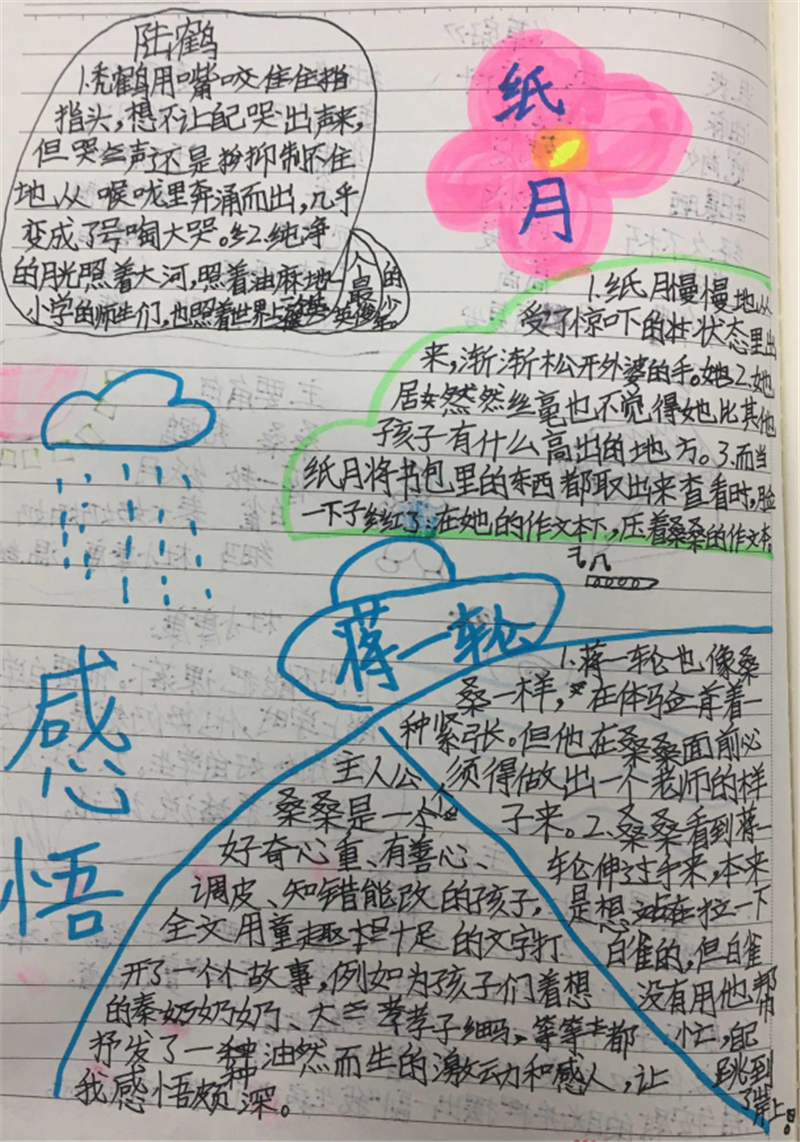 陆鹤
1.秃鹤用嘴咬住住挡
指头，想不让自己哭出声来，
但哭声还是抑制不住
地从喉咙里奔涌而出，几乎
变成了号啕大哭。2.纯净
的月光照着大河，照着油麻地
小学的师生们，也照着世界上一个最
英俊的少年
纸
月
1.纸月慢慢地从
受了惊吓的状态里出
来，渐渐松开外婆的手。2.她
居然丝毫也不觉得她比其他
孩子有什么高出的地方。3.而当
纸月将书包里的东西都取出来查看时，脸
一下子红了：在她的作文本下，压着桑桑的作文本
蒋一轮
1.蒋一轮也像桑
桑一样，在体验前着一
种紧张。但他在桑桑面前必
须得做出一个老师的样
子来。2.桑桑看到蒋一
轮伸过手来，本来
是想拉一下
白雀的，但白雀
没有用他帮
忙，自己
跳到
了岸上。
感
悟
主人公
桑桑是一个
好奇心重、有善心、
调皮、知错能改的孩子，
全文用童趣十足的文字打
开了一个个故事，例如为孩子们着想
的秦奶奶奶、大孝孝子细马，等等都
抒发了一种油然而生的激动和感人，让
我感悟颇深。